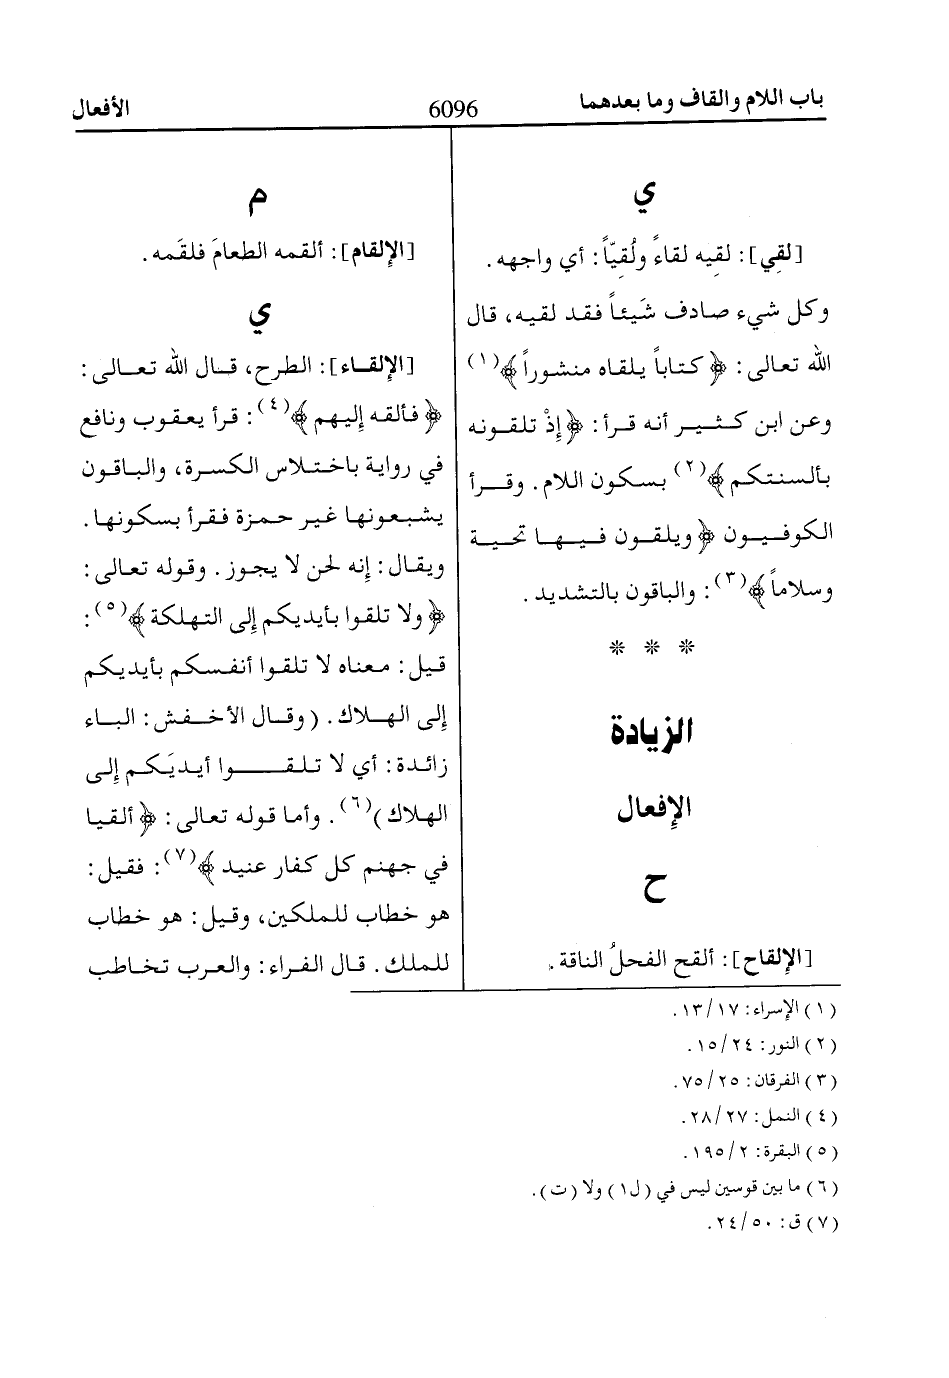 باب اللام والقاف وما بعدهما
6096
الأفعال
ي
[لقي]: لقيه لقاءً ولُقيّاً: أي واجهه.
وكل شيء صادف شَيئاً فقد لقيه، قال
الله تعالى: ﴿كتاباً يلقاه منشوراً﴾(١)
وعن ابن كثير أنه قرأ: ﴿إِذْ تلقونه
بألسنتكم﴾(٢) بسكون اللام. وقرأ
الكوفيون ﴿ويلقون فيها تحية
وسلاماً﴾(٣): والباقون بالتشديد.
* * *
الزيادة
الإفعال
ح
[الإلقاح]: ألقح الفحلُ الناقة.
م
[الإلقام]: ألقمه الطعامَ فلقَمه.
ي
[الإلقاء]: الطرح، قال الله تعالى:
﴿فألقه إليهم﴾(٤): قرأ يعقوب ونافع
في رواية باختلاس الكسرة، والباقون
يشبعونها غير حمزة فقرأ بسكونها.
ويقال: إنه لحن لا يجوز. وقوله تعالى:
﴿ولا تلقوا بأيديكم إلى التهلكة﴾(٥):
قيل: معناه لا تلقوا أنفسكم بأيديكم
إلى الهلاك. (وقال الأخفش: الباء
زائدة: أي لا تلقوا أيديَكم إلى
الهلاك)(٦). وأما قوله تعالى: ﴿ألقيا
في جهنم كل كفار عنيد﴾(٧): فقيل:
هو خطاب للملكين، وقيل: هو خطاب
للملك. قال الفراء: والعرب تخاطب
(١) الإسراء: ١٣/١٧.
(٢) النور: ١٥/٢٤.
(٣) الفرقان: ٧٥/٢٥.
(٤) النمل: ٢٨/٢٧.
(٥) البقرة: ١٩٥/٢.
(٦) ما بين قوسين ليس في (ل١) ولا (ت).
(٧) ق: ٢٤/٥٠.